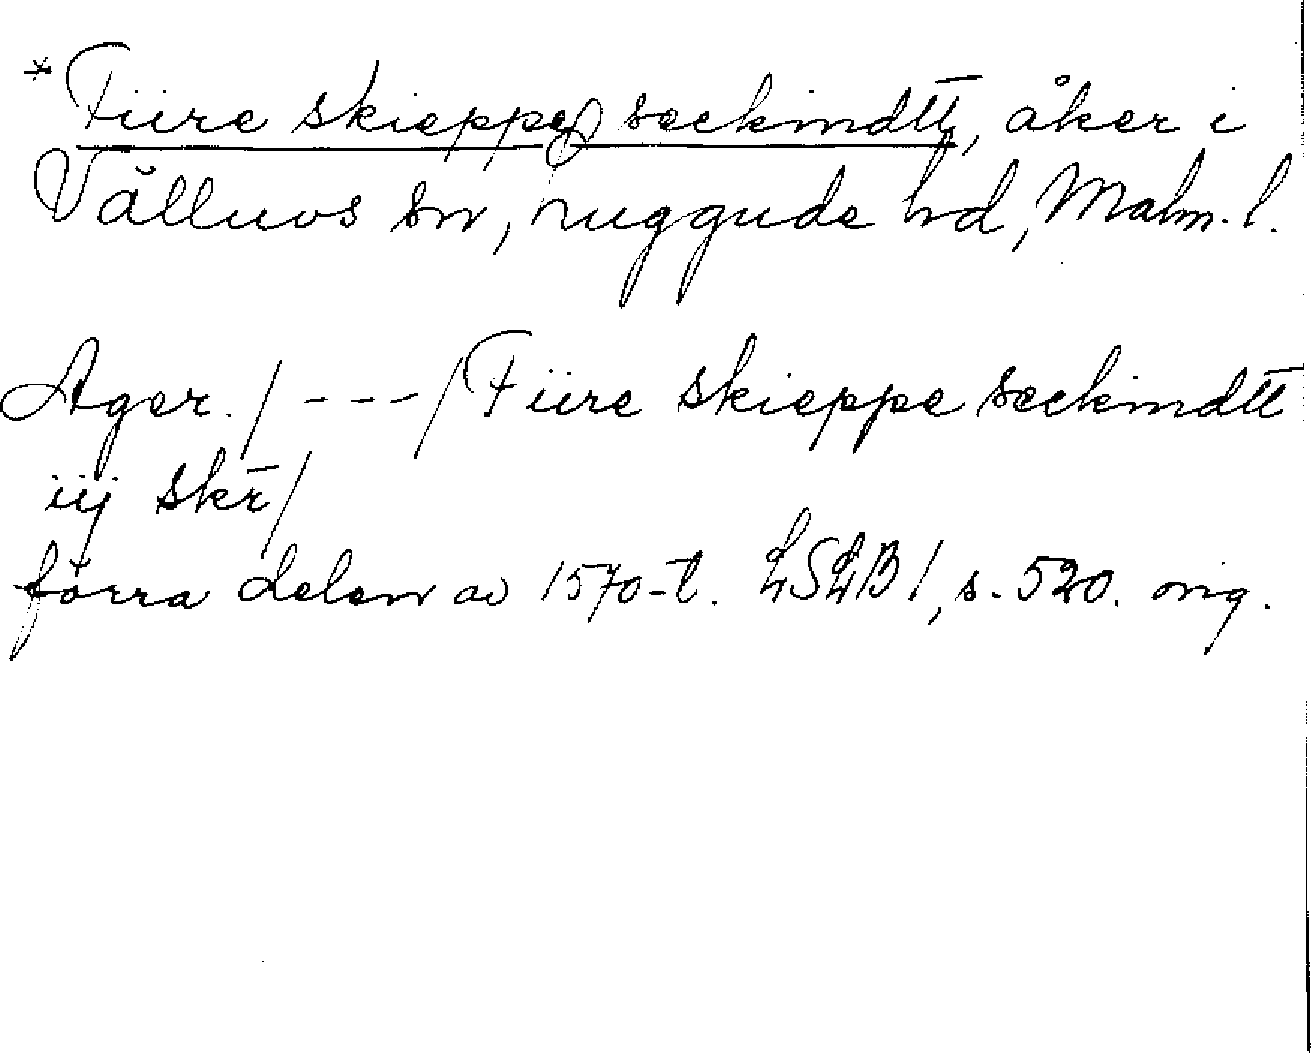 *Fiire skieppe seckmdtt, åker i
Välluvs sn, Luggude hd, Malm. l.
Ager. / - - - / Fiire skieppe seckmdtt
iij skr̄ /
förra delen av 1570-t. LSLB 1, s. 520. orig.